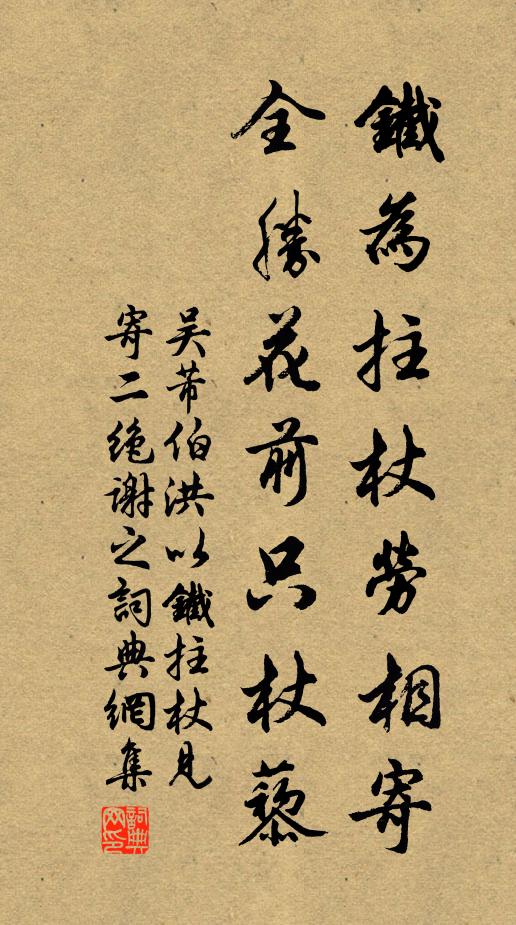 鐵為拄杖勞相寄
全勝花前只杖藜
吴芾伯洪以鐵拄杖見
寄二绝謝之詞典網集
詞典
网印